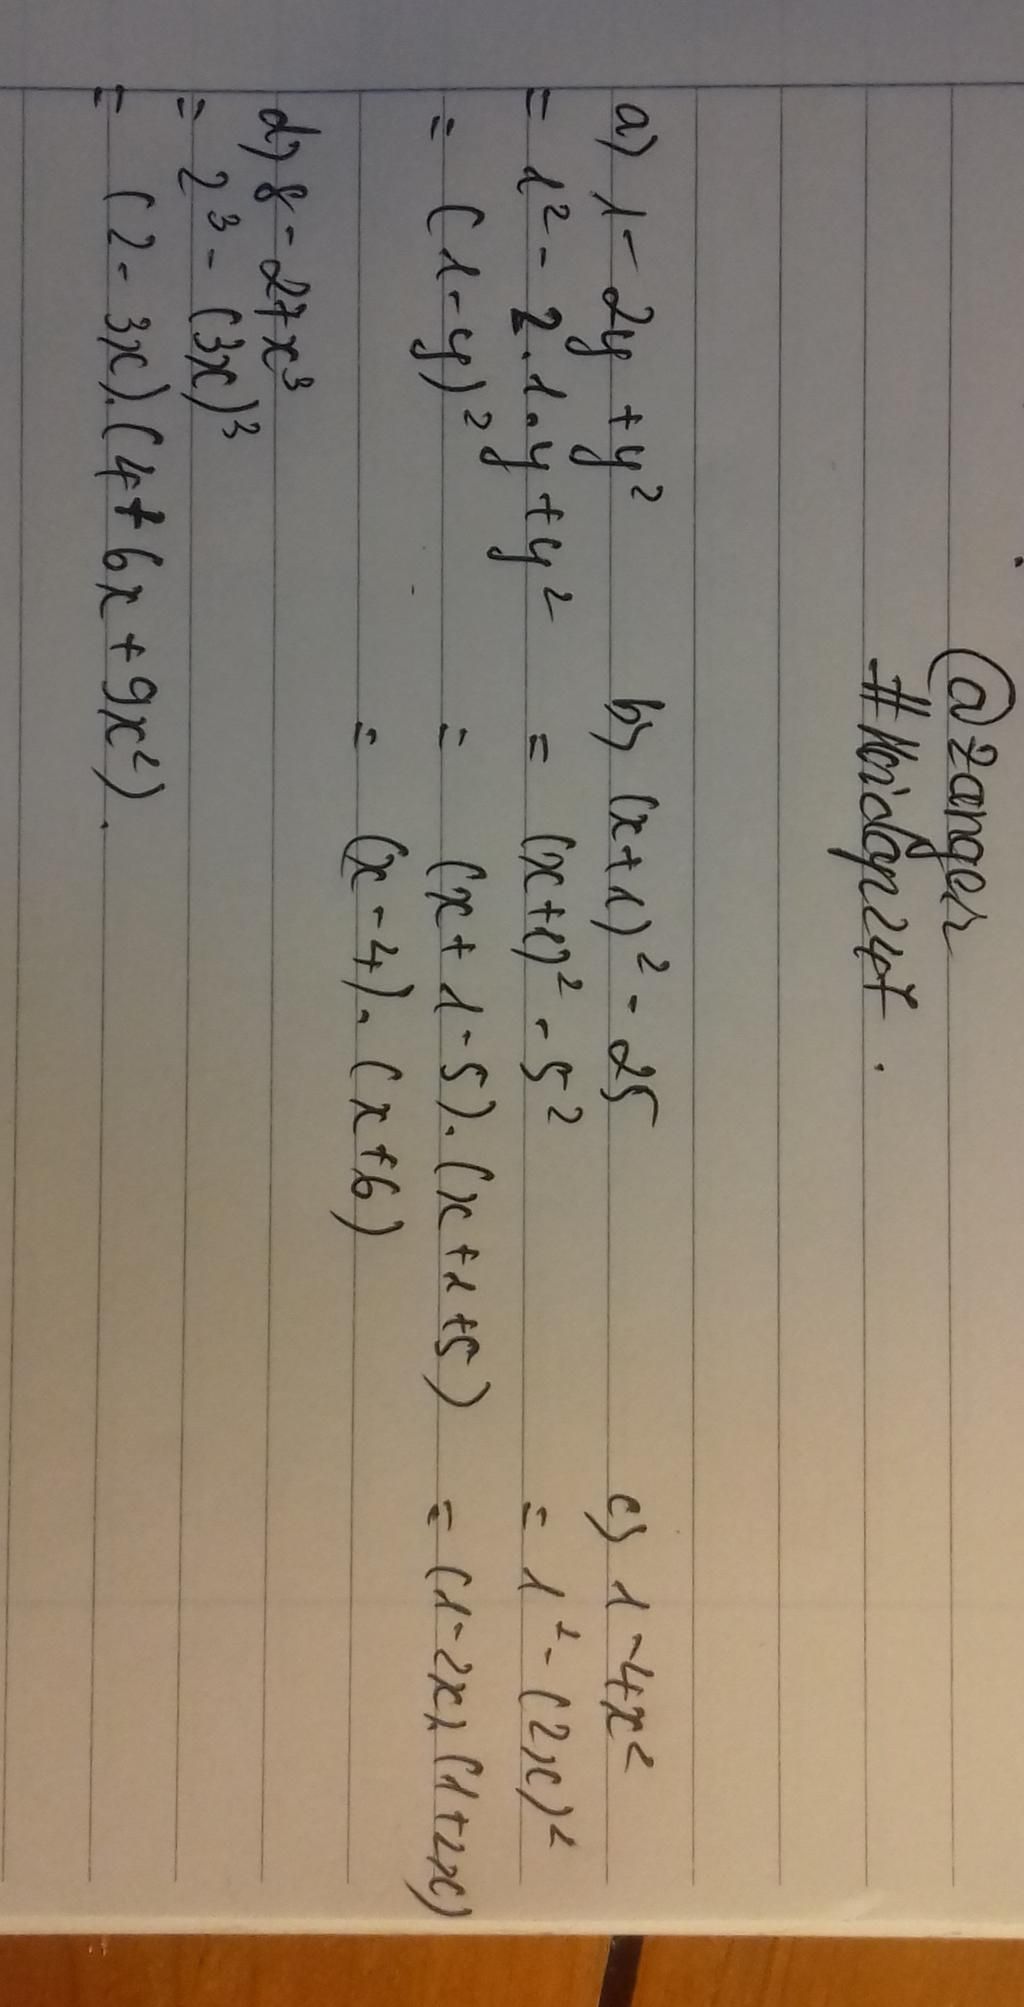 @zanger
#Hoidap247.
a) 1 - 2y + y²
= 1² - 2.1.y + y²
= (1-y)²
b) (x+1)² - 25
= (x+1)² - 5²
= (x+1-5).(x+1+5)
= (x-4).(x+6)
c) 1-4x²
= 1² - (2x)²
= (1-2x).(1+2x)
d) 8 - 27x³
= 2³ - (3x)³
= (2-3x).(4+6x+9x²).